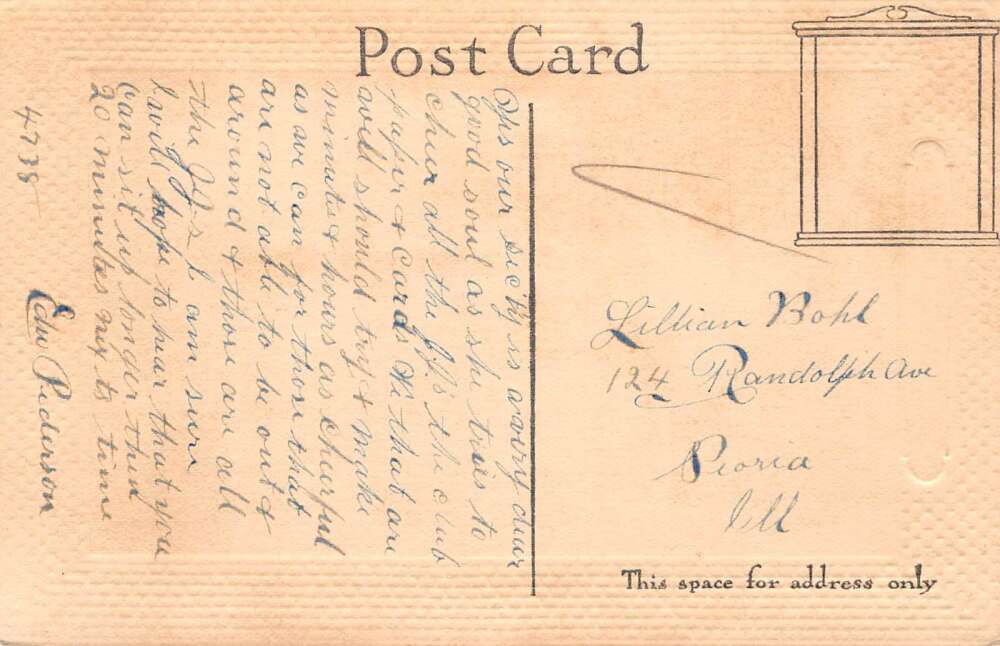 Post Card
Yes our Secy is a very dear
good soul as she tries to
cheer all the JJ's the club
paper & cards We that are
well should try & make
minutes & hours as cheerful
as we can for those that
are not able to be out &
around & those are all
the JJs I am sure
I will hope to hear that you
can sit up longer then
20 minutes nex ts time
Edw Pederson
4738
Lillian Bohl
124 Randolph Ave
Peoria
Ill
This space for address only